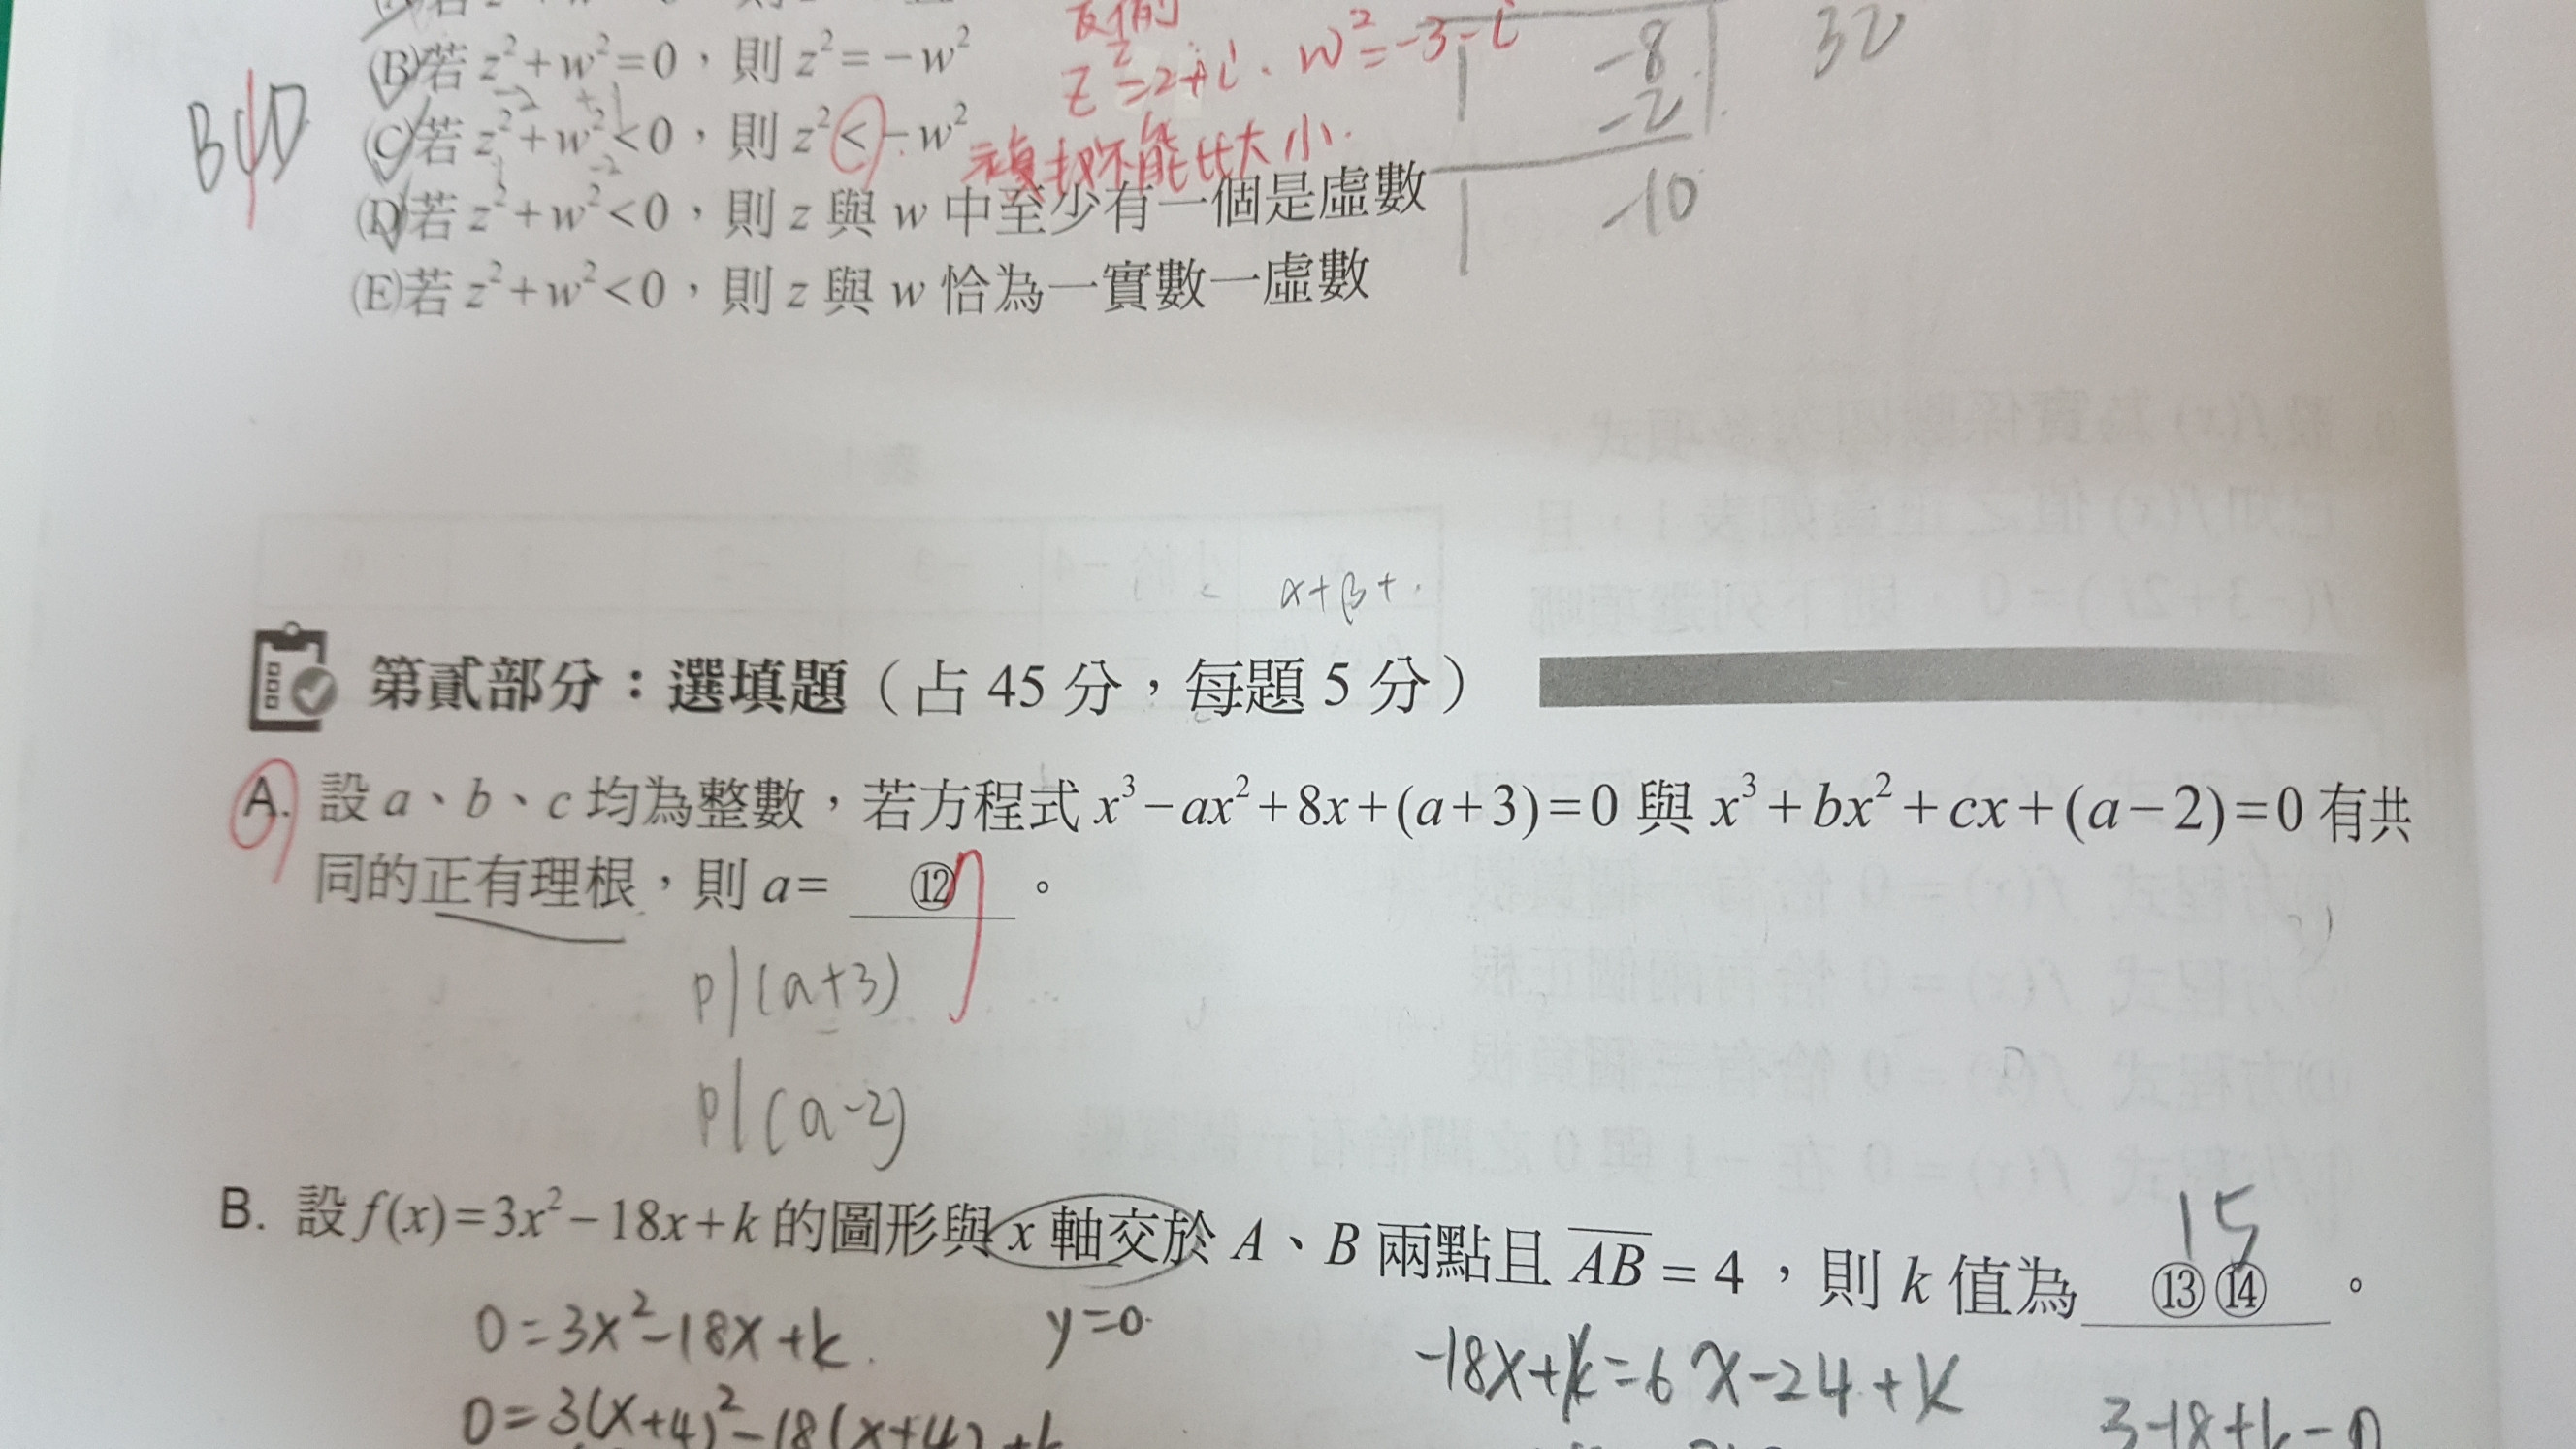 (B)若 z²+w²=0，則 z²=−w²
反例
z²=2+i、w²=-3-i
-8
-2
-10
32
BCD
(C)若 z²+w²<0，則 z²<−w²
複數不能比大小.
(D)若 z²+w²<0，則 z 與 w 中至少有一個是虛數
(E)若 z²+w²<0，則 z 與 w 恰為一實數一虛數
α+β+.
第貳部分：選填題（占 45 分，每題 5 分）
A. 設 a、b、c 均為整數，若方程式 x³−ax²+8x+(a+3)=0 與 x³+bx²+cx+(a−2)=0 有共
同的正有理根，則 a= ⑫ 。
7
p|(a+3)
p|(a-2)
15
B. 設 f(x)=3x²−18x+k 的圖形與 x 軸交於 A、B 兩點且 AB = 4，則 k 值為 ⑬⑭ 。
0=3x²-18x+k.
y=0.
-18x+k=6x-24+k
0=3(x+4)²-18(x+4)+k
3-18+k=0